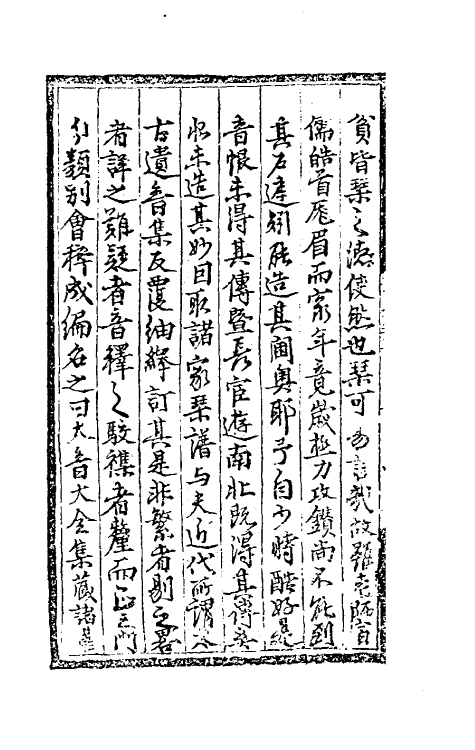 貧皆琴之德使然也琴可易言哉故雖老師宿
儒皓首厖眉而家年竟歲極力攻鑽尚不能到
其石達孰能造其閫奧耶予自少時酷好是
音恨未得其傳暨長宦遊南北既得其傳矣
惟未造其妙因取諸家琴譜与夫近代所謂太
古遺音集反覆紬繹訂其是非繁者剔之畧
者詳之難疑者音釋之駁襍者釐而正之門
分類別會稡成編名之曰太音大全集藏諸